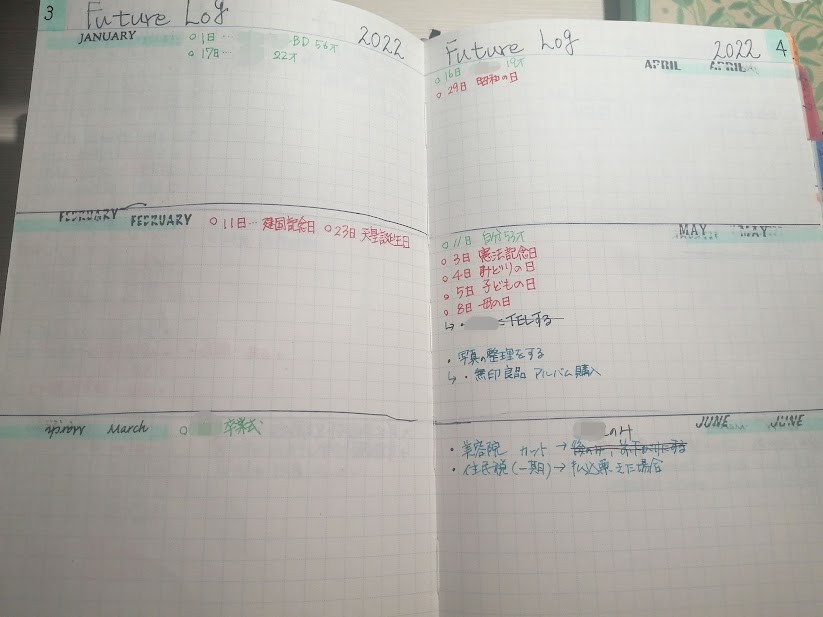 3 Future Log 2022
JANUARY
○ 1日… BD 56才
○ 17日… 22才
FEBRUARY FEBRUARY ○ 11日… 建国記念日 ○ 23日 天皇誕生日
March March ○ 卒業式
Future Log 2022 4
APRIL APRIL
○ 16日 19才
○ 29日 昭和の日
MAY MAY
○ 11日 自分53才
○ 3日 憲法記念日
○ 4日 みどりの日
○ 5日 子どもの日
○ 8日 母の日
↳ ・ TELする
・写真の整理をする
↳ ・無印良品 アルバム購入
JUNE JUNE
・美容院 カット →
・住民税(一期)→ 払込票きた場合